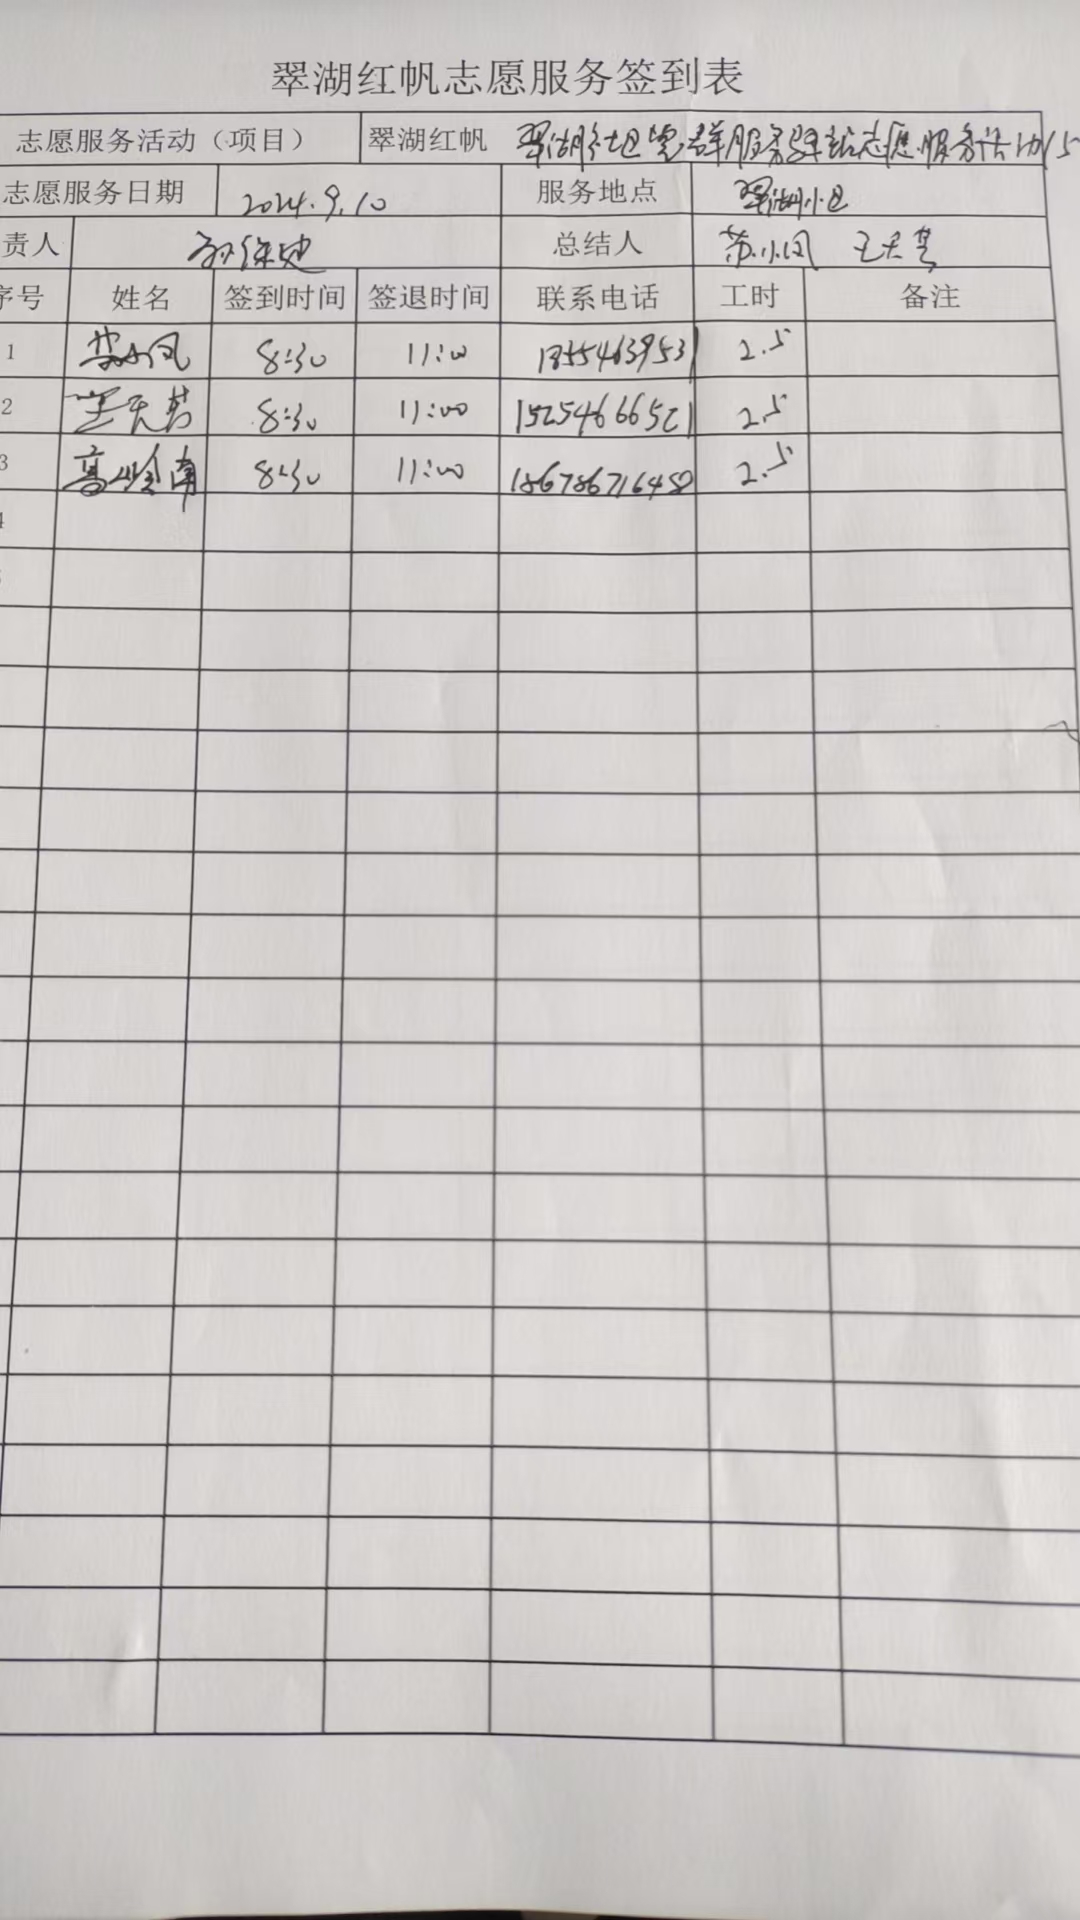 翠湖红帆志愿服务签到表
志愿服务活动（项目） 翠湖红帆 翠湖社区党群服务驿站志愿服务活动
志愿服务日期 2024.9.10 服务地点 翠湖小区
责人 总结人 苏小凤
序号 姓名 签到时间 签退时间 联系电话 工时 备注
1 苏小凤 8:30 11:00 18554639531 2.5
2 8:30 11:00 15254666521 2.5
3 8:30 11:00 2.5
4